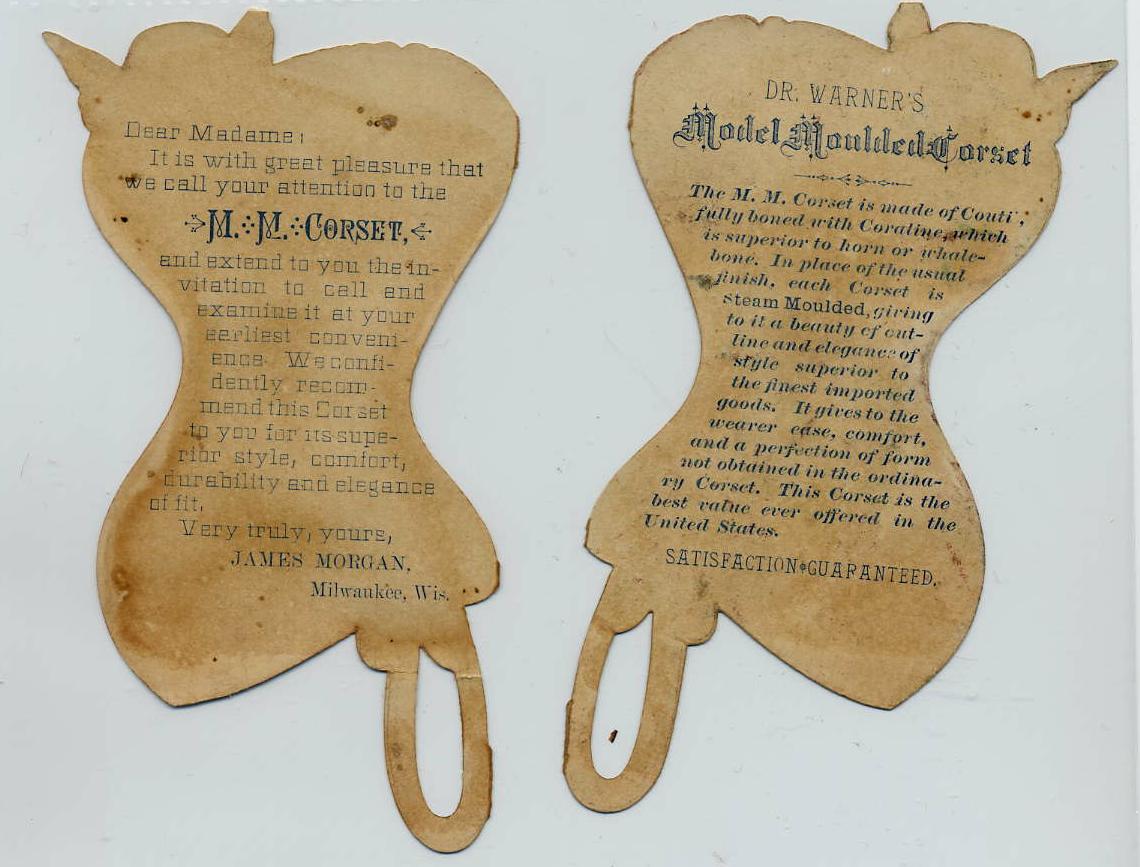 Dear Madame:
It is with great pleasure that
we call your attention to the
M. M. CORSET,
and extend to you the in-
vitation to call and
examine it at your
earliest conveni-
ence. We confi-
dently recom-
mend this Corset
to you for its supe-
rior style, comfort,
durability and elegance
of fit.
Very truly, yours,
JAMES MORGAN,
Milwaukee, Wis.
DR. WARNER'S
Model Moulded Corset
The M. M. Corset is made of Couti
fully boned with Coraline, which
is superior to horn or whale-
bone. In place of the usual
finish, each Corset is
Steam Moulded, giving
to it a beauty of out-
line and elegance of
style superior to
the finest imported
goods. It gives to the
wearer ease, comfort,
and a perfection of form
not obtained in the ordina-
ry Corset. This Corset is the
best value ever offered in the
United States.
SATISFACTION GUARANTEED.